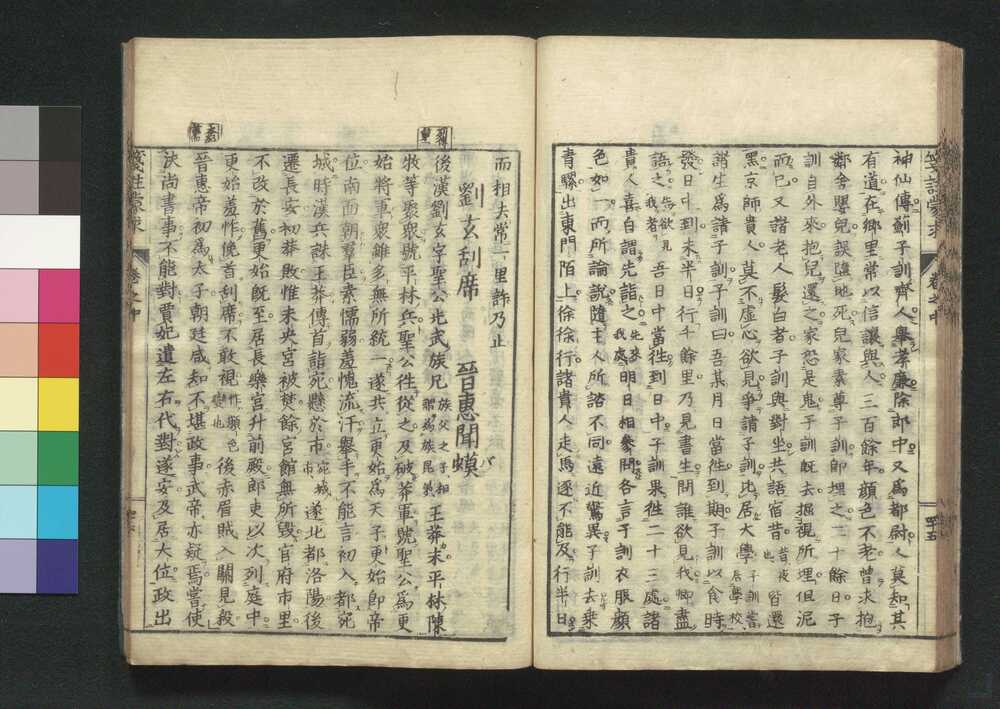 神仙傳薊子訓齊人舉孝廉除郎中又爲都尉人莫知其
有道在鄉里常以信讓與人三百餘年顏色不老曾求抱
鄰舍嬰兒誤墮地死兒家素尊子訓即埋之二十餘日子
訓自外來抱兒還之家恐是鬼子訓旣去掘視所埋但泥
而已又諸老人髮白者子訓與對坐共語宿昔昔夜也皆還
黑京師貴人莫不虛心欲見爭請子訓比居大學子訓嘗居學校
諸生爲請子訓子訓曰吾某月日當徃到期子訓以食時
發日中到未半日行千餘里乃見書生問誰欲見我卿盡
語之告欲見我者吾日中當徃到日中子訓果徃二十三處諸
貴人喜自謂先詣之先來我處明日相參問各言子訓衣服顏
色如一而所論說隨主人所諮不同遠近驚異子訓去乘
青騾出東門陌上徐徐行諸貴人走馬逐不能及行半日
箋註蒙求 卷之中 四十五
而相去常一里許乃止
劉玄刮席 晉惠聞蟆
後漢劉玄字聖公光武族兄族父之子相謂爲族昆弟王莽末平林陳
牧等聚衆號平林兵聖公徃從之及破莽軍號聖公爲更
始將軍衆雖多無所統一遂共立更始爲天子更始即帝
位南面朝羣臣素懦弱羞愧流汗舉手不能言初入都宛
城時漢兵誅王莽傳首詣宛懸於市宛城市遂北都洛陽後
遷長安初莽敗惟未央宮被焚餘宮館無所毀官府市里
不改於舊更始旣至居長樂宮升前殿郎吏以次列庭中
更始羞怍俛首刮席不敢視怍顏色變也後赤眉賊入關見殺
晉惠帝初爲太子朝廷咸知不堪政事武帝亦疑焉嘗使
決尚書事不能對賈妃遣左右代對遂安及居大位政出
箋註蒙求 卷之中